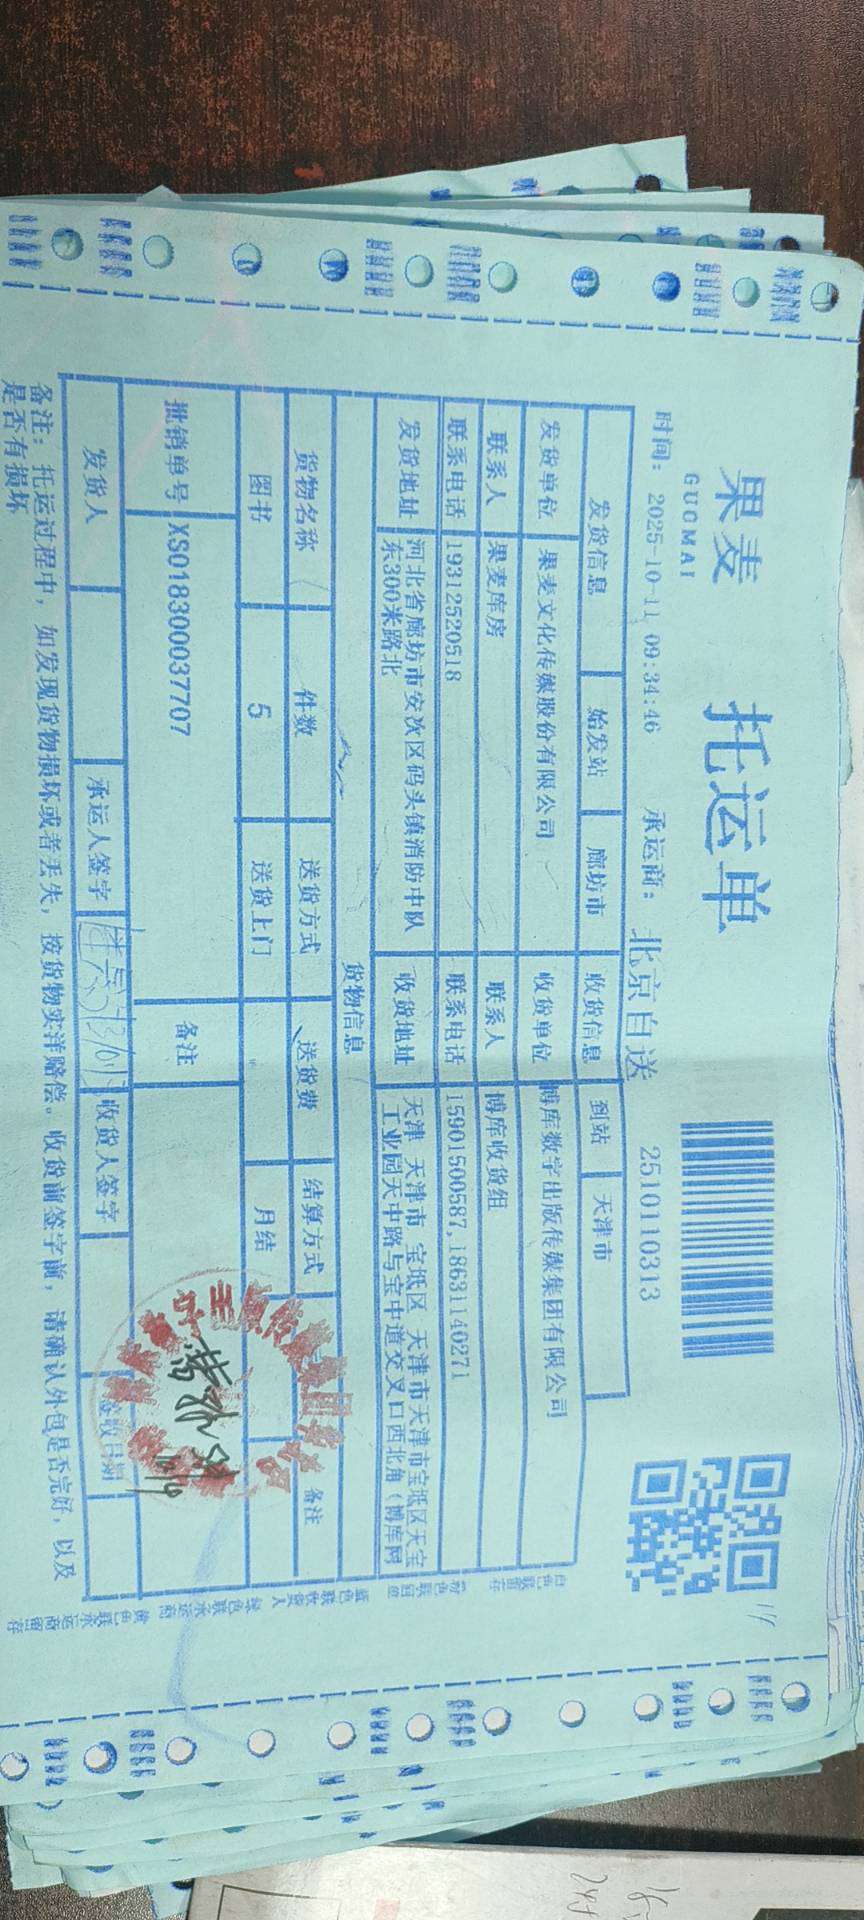 果麦
GUOMAI
托运单
时间： 2025-10-11 09:34:46 承运商： 北京自送 2510110313
发货信息 始发站 廊坊市 收货信息 到站 天津市
发货单位 果麦文化传媒股份有限公司 收货单位 博库数字出版传媒集团有限公司
联系人 果麦库房 联系人 博库收货组
联系电话 19312520518 联系电话 15901500587,18631140271
发货地址 河北省廊坊市安次区码头镇消防中队东300米路北 收货地址 天津 天津市 宝坻区 天津市天津市宝坻区天宝工业园天中路与宝中道交叉口西北角（博库网
货物信息
货物名称 件数 送货方式 送货费 结算方式 备注
图书 5 送货上门 月结
批销单号 XS018300037707 备注
发货人 承运人签字 收货人签字 签收日期
备注：托运过程中，如发现货物损坏或者丢失，按货物实洋赔偿。收货前签字前，请确认外包是否完好，以及
是否有损坏